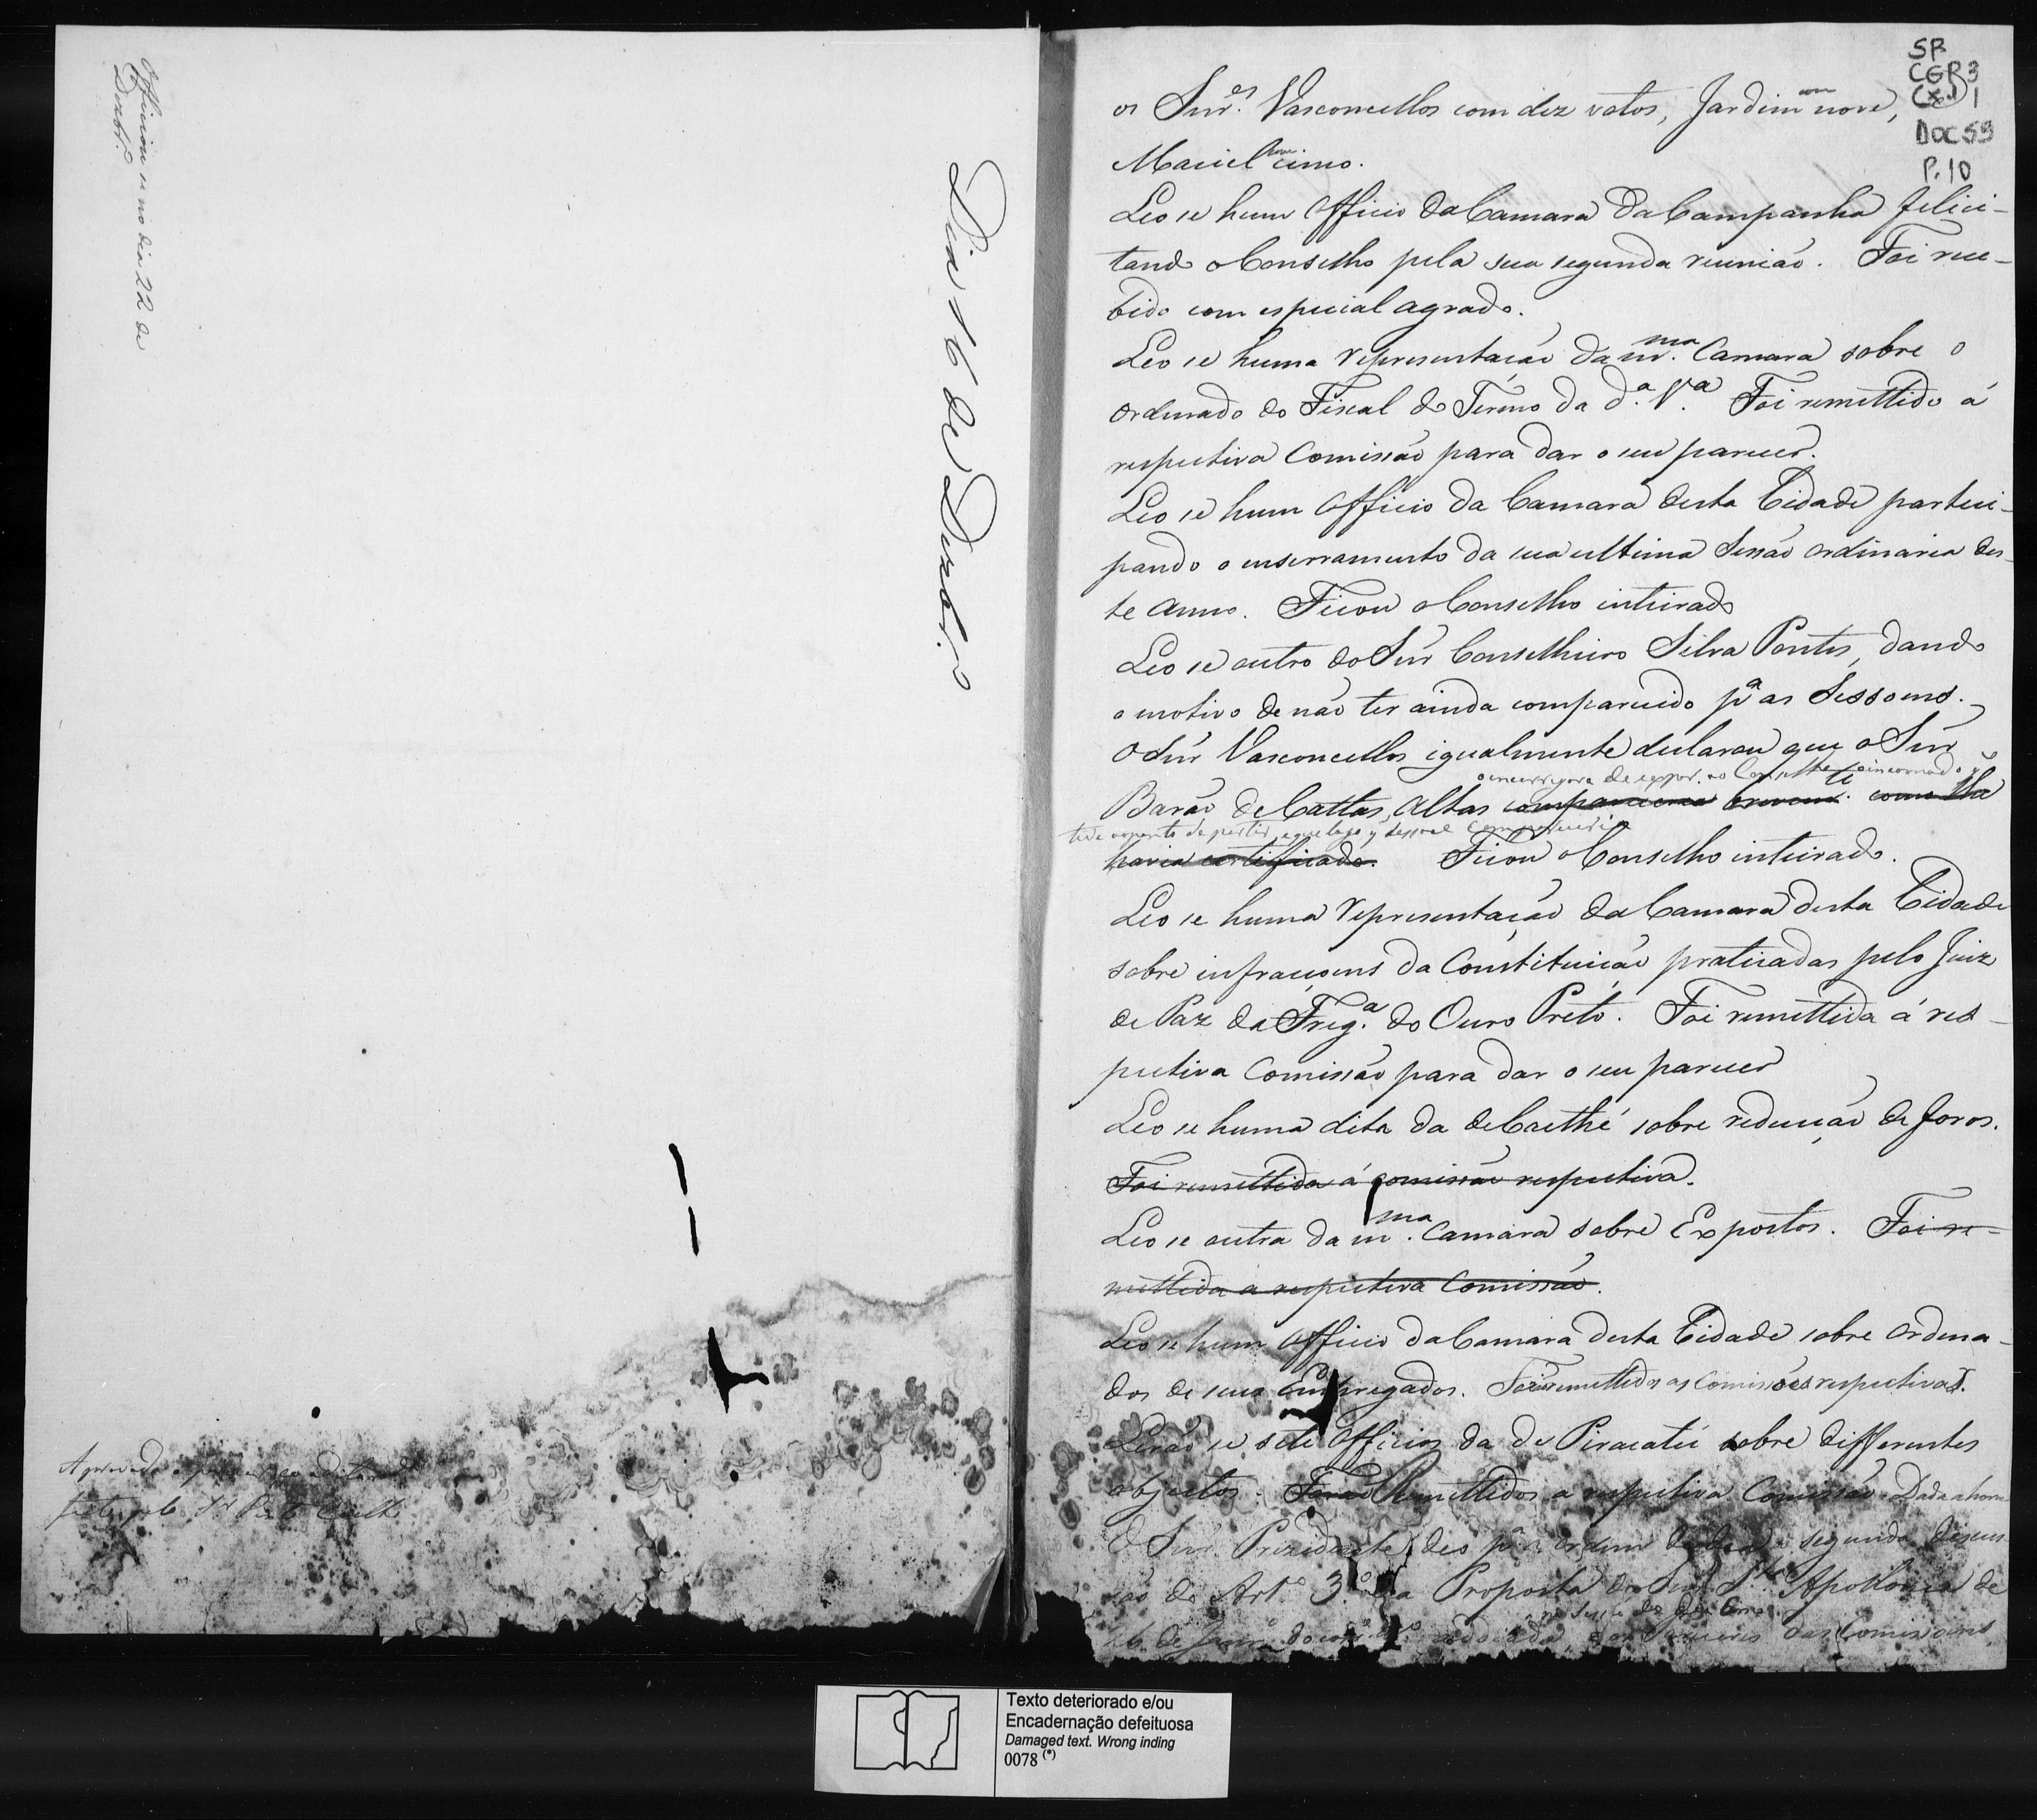 Officiou se no dia 22 de
Dezbr.º
Dia 16 de Dezbr.º
SP
CGP 3
Cx. 1
DOC 59
P. 10
os Snr.es Vasconcellos com dez votos, Jardim com nove,
Maciel cinco.
Leo se hum Officio da Camara da Campanha felici-
tando o Conselho pela sua segunda reunião. Foi rece-
bido com especial agrado.
Leo se huma representação da m.ma Camara sobre o
ordenado do Fiscal do Termo da d.a V.a Foi remettido á
respectiva Comissão para dar o seu parecer.
Leo se hum Officio da Camara desta Cidade partici-
pando o enserramento da sua ultima Sessão ordinaria des-
te anno. Ficou o Conselho inteirado
Leo se outro do Snr Conselheiro Silva Pontes, dando
o motivo de não ter ainda comparecido p.a as Sessoens.
O Snr Vasconcellos igualmente declarou que o Snr
o encarregara de expor ao Conselho o incomodo q
Barão de Cattas Altas compareceria brevem.te como lha
teve a ponto de partir, e que logo q
havia certificado. Ficou o Conselho inteirado.
Leo se huma representação da Camara desta Cidade
sobre infraçoens da Constituição praticadas pelo Juiz
de Paz da Freg.a do Ouro Preto. Foi remettida á res-
pectiva Comissão para dar o seu parecer
Leo se huma dita da de Caethé sobre redução de foros.
Foi remettida á comissão respectiva.
Leo se outra da m.ma Camara sobre Expostos. Foi re-
mettida a respectiva Comissão.
Leo se hum Officio da Camara desta Cidade sobre ordena-
dos de seus Empregados. remettidos as Comissões respectivas.
Lerão se sete Officios da de Piracatú sobre differentes
objectos. Forão remettidos a respectiva Comissão. Dada a hora
O Snr. Prezidente deo p.a ordem do dia a segunda discus-
são do Art.º 3.º da Proposta do Snr S.ta Apollonia de
pareceres das Comissoens,
Aprovado
feita pelo Sr. Pinto
Texto deteriorado e/ou
Encadernação defeituosa
Damaged text. Wrong inding
0078 (*)